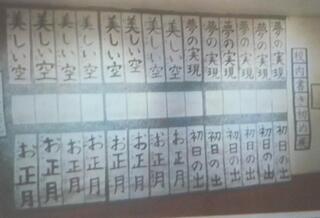 校内書き初め展
夢の実現
夢の実現
夢の実現
夢の実現
夢の実現
夢の実現
美しい空
美しい空
美しい空
美しい空
美しい空
美しい空
美しい空
美しい空
初日の出
初日の出
初日の出
初日の出
初日の出
初日の出
お正月
お正月
お正月
お正月
お正月
お正月
お正月
お正月